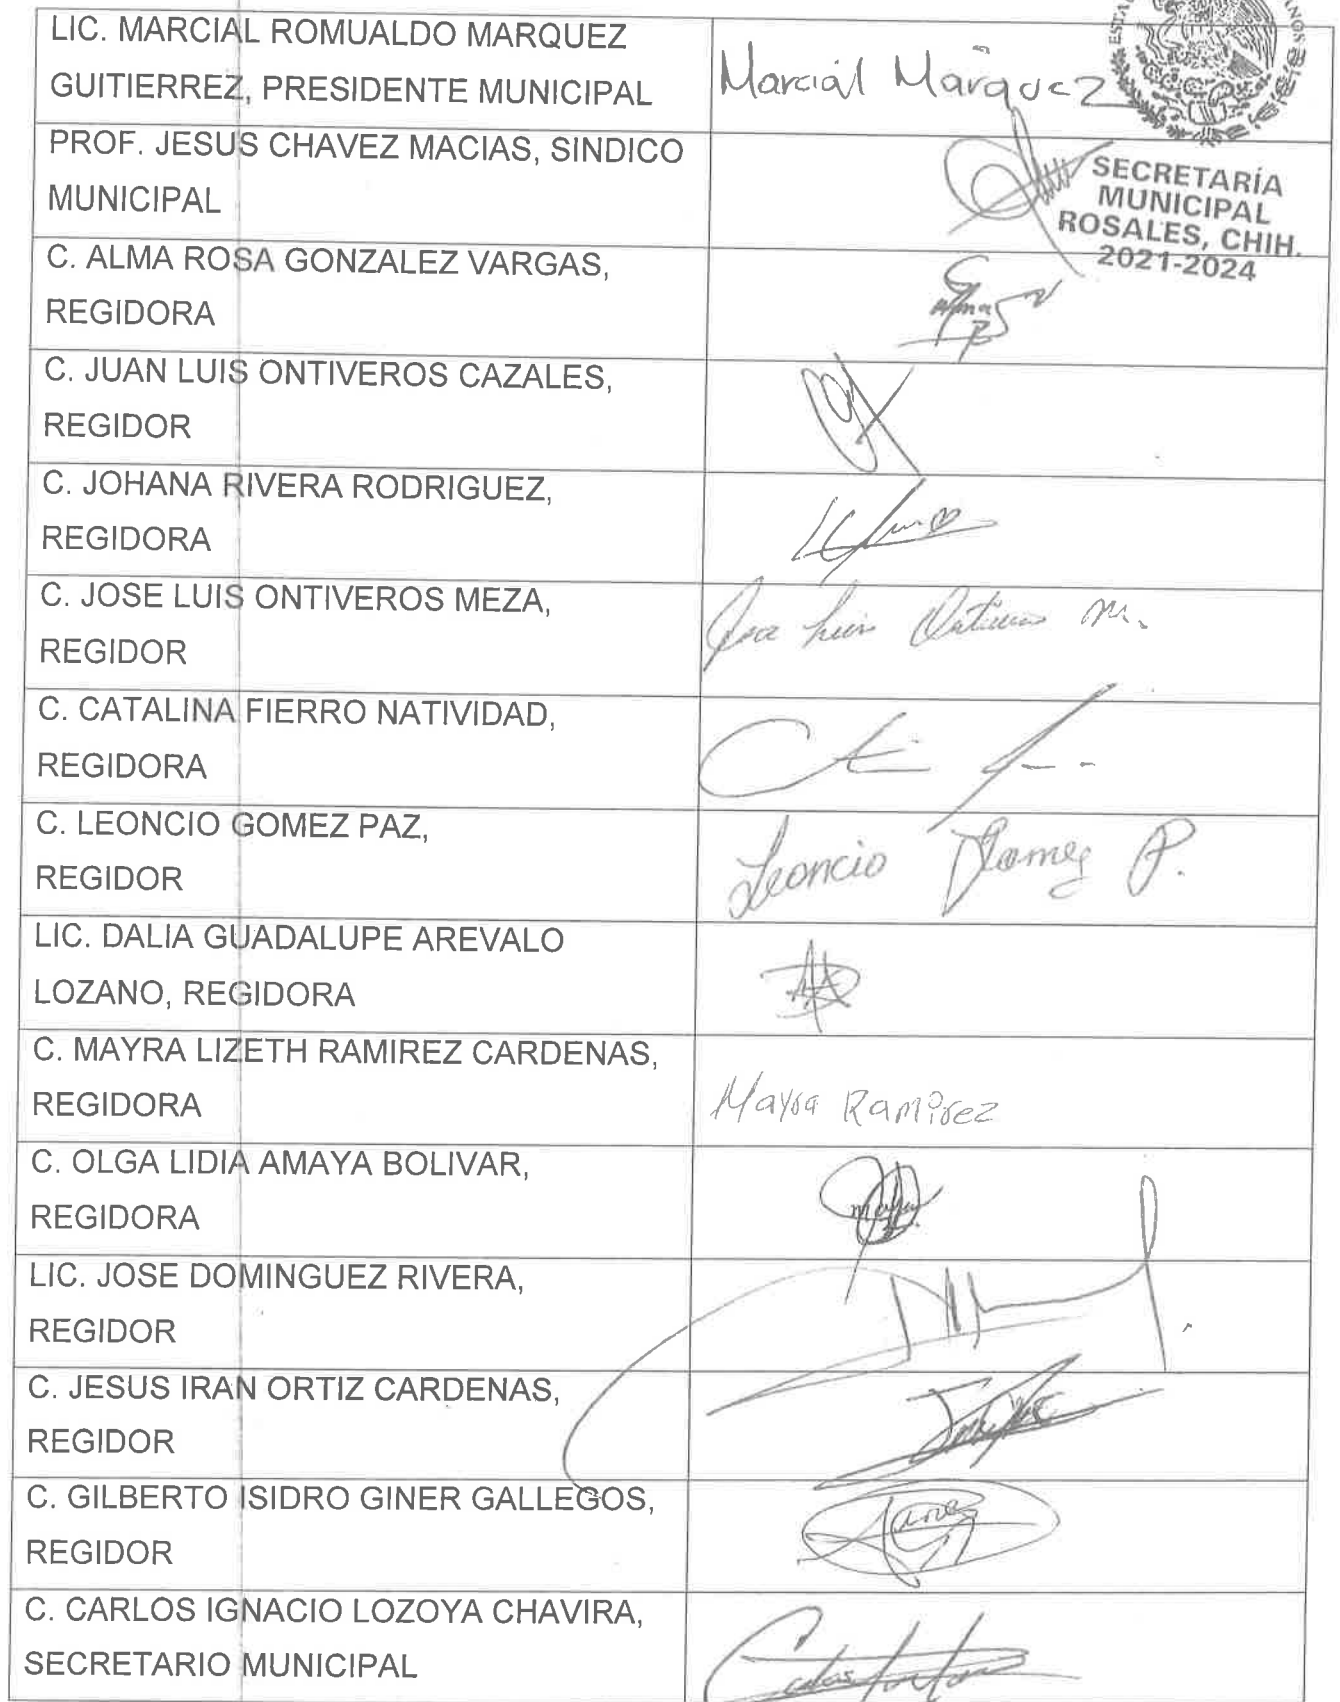 LIC. MARCIAL ROMUALDO MARQUEZ
GUITIERREZ, PRESIDENTE MUNICIPAL
Marcial Márquez
PROF. JESUS CHAVEZ MACIAS, SINDICO
MUNICIPAL
SECRETARÍA
MUNICIPAL
ROSALES, CHIH.
2021-2024
C. ALMA ROSA GONZALEZ VARGAS,
REGIDORA
C. JUAN LUIS ONTIVEROS CAZALES,
REGIDOR
C. JOHANA RIVERA RODRIGUEZ,
REGIDORA
C. JOSE LUIS ONTIVEROS MEZA,
REGIDOR
Jose Luis Ontiveros M.
C. CATALINA FIERRO NATIVIDAD,
REGIDORA
C. LEONCIO GOMEZ PAZ,
REGIDOR
Leoncio Gomez P.
LIC. DALIA GUADALUPE AREVALO
LOZANO, REGIDORA
C. MAYRA LIZETH RAMIREZ CARDENAS,
REGIDORA
Mayra Ramirez
C. OLGA LIDIA AMAYA BOLIVAR,
REGIDORA
LIC. JOSE DOMINGUEZ RIVERA,
REGIDOR
C. JESUS IRAN ORTIZ CARDENAS,
REGIDOR
C. GILBERTO ISIDRO GINER GALLEGOS,
REGIDOR
C. CARLOS IGNACIO LOZOYA CHAVIRA,
SECRETARIO MUNICIPAL